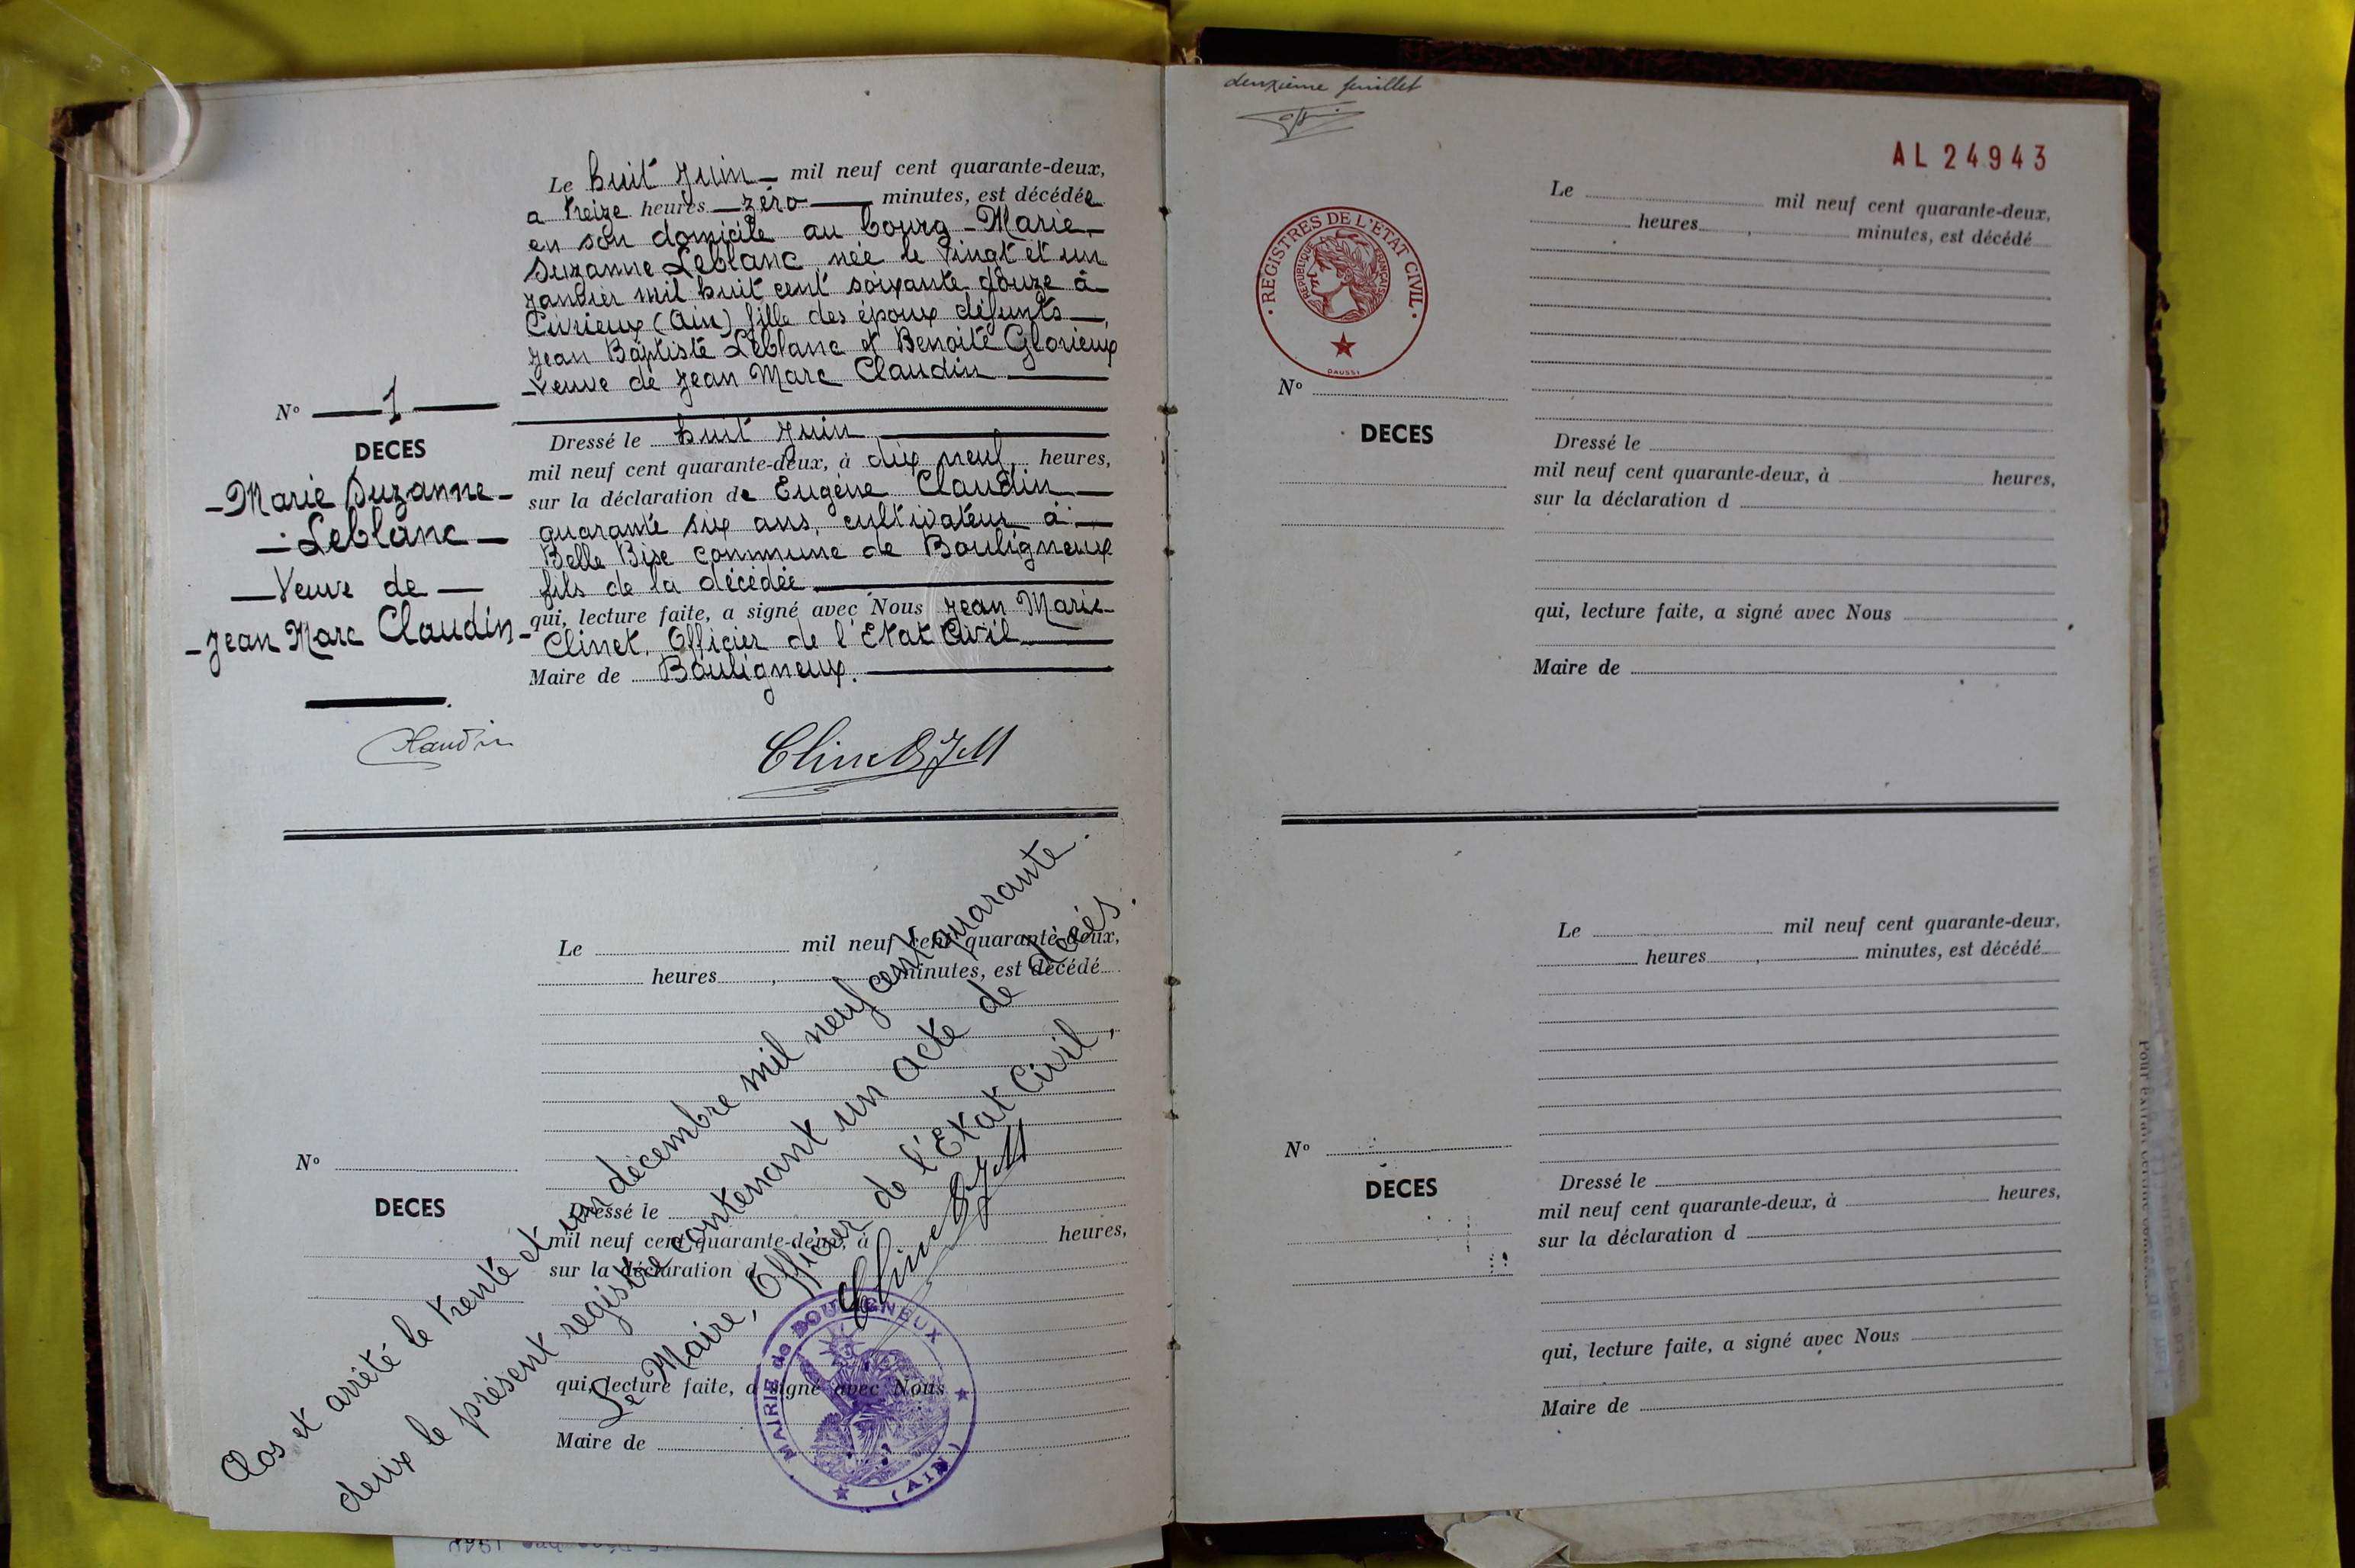 Le huit Juin mil neuf cent quarante-deux,
a treize heures zéro minutes, est décédée
en son domicile au bourg - Marie
Suzanne Leblanc née le vingt et un
janvier mil huit cent soixante douze à
Civrieux (Ain) fille des époux défunts
Jean Baptiste Leblanc et Benoite Glorieux
Veuve de Jean Marc Claudin
N° 1
DECES
Marie Suzanne
Leblanc
Veuve de
Jean Marc Claudin
Dressé le huit Juin
mil neuf cent quarante-deux, à dix neuf heures,
sur la déclaration de Eugène Claudin
quarante six ans, cultivateur à
Belle Bise commune de Bouligneux
fils de la décédée
qui, lecture faite, a signé avec Nous Jean Marie
Clinet, Officier de l'Etat Civil
Maire de Bouligneux.
Claudin
Clinet JM
Le mil neuf cent quarante-deux,
heures, minutes, est décédé
N°
DECES
Dressé le
mil neuf cent quarante-deux, à heures,
sur la déclaration d
qui, lecture faite, a signé avec Nous
Maire de
Clos et arrêté le trente et un décembre mil neuf cent quarante
deux le présent registre contenant un acte de décés.
Le Maire, Officier de l'Etat Civil,
Clinet JM
MAIRIE de BOULIGNEUX
(AIN)
deuxième feuillet
AL 24943
REGISTRES DE L'ETAT CIVIL
REPUBLIQUE FRANÇAISE
DAUSSI
Le mil neuf cent quarante-deux,
heures, minutes, est décédé
N°
DECES
Dressé le
mil neuf cent quarante-deux, à heures,
sur la déclaration d
qui, lecture faite, a signé avec Nous
Maire de
Le mil neuf cent quarante-deux,
heures, minutes, est décédé
N°
DECES
Dressé le
mil neuf cent quarante-deux, à heures,
sur la déclaration d
qui, lecture faite, a signé avec Nous
Maire de